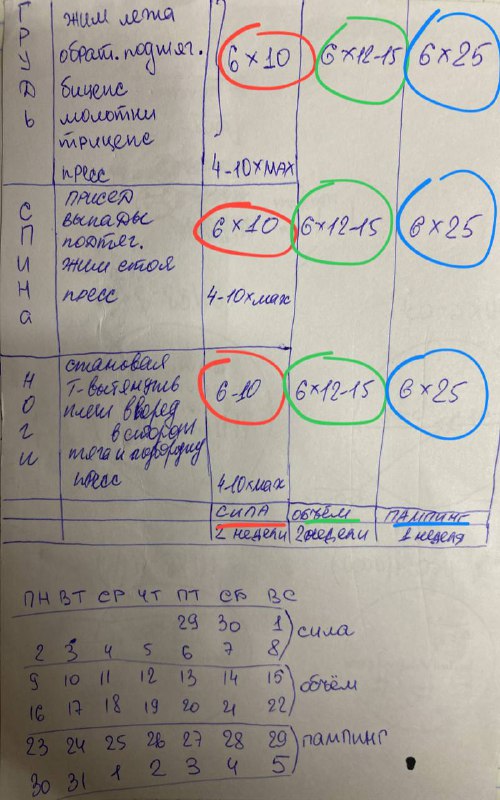 ГРУДЬ
жим лежа
обрат. подтяг.
бицепс
молотки
трицепс
6×10 6×12-15 6×25
пресс 4-10×МАХ
СПИНА
ПРИСЕД
выпады
подтяг.
жим стоя
6×10 6×12-15 6×25
пресс 4-10×мах
НОГИ
становая
Т-вытянуть
плеч вперед
в стороны
тяга к подбородку
6-10 6×12-15 6×25
пресс 4-10×мах
СИЛА ОБЪЁМ ПАМПИНГ
2 недели 2 недели 1 неделя
ПН ВТ СР ЧТ ПТ СБ ВС
29 30 1
сила
2 3 4 5 6 7 8
9 10 11 12 13 14 15
объём
16 17 18 19 20 21 22
23 24 25 26 27 28 29
пампинг
30 31 1 2 3 4 5